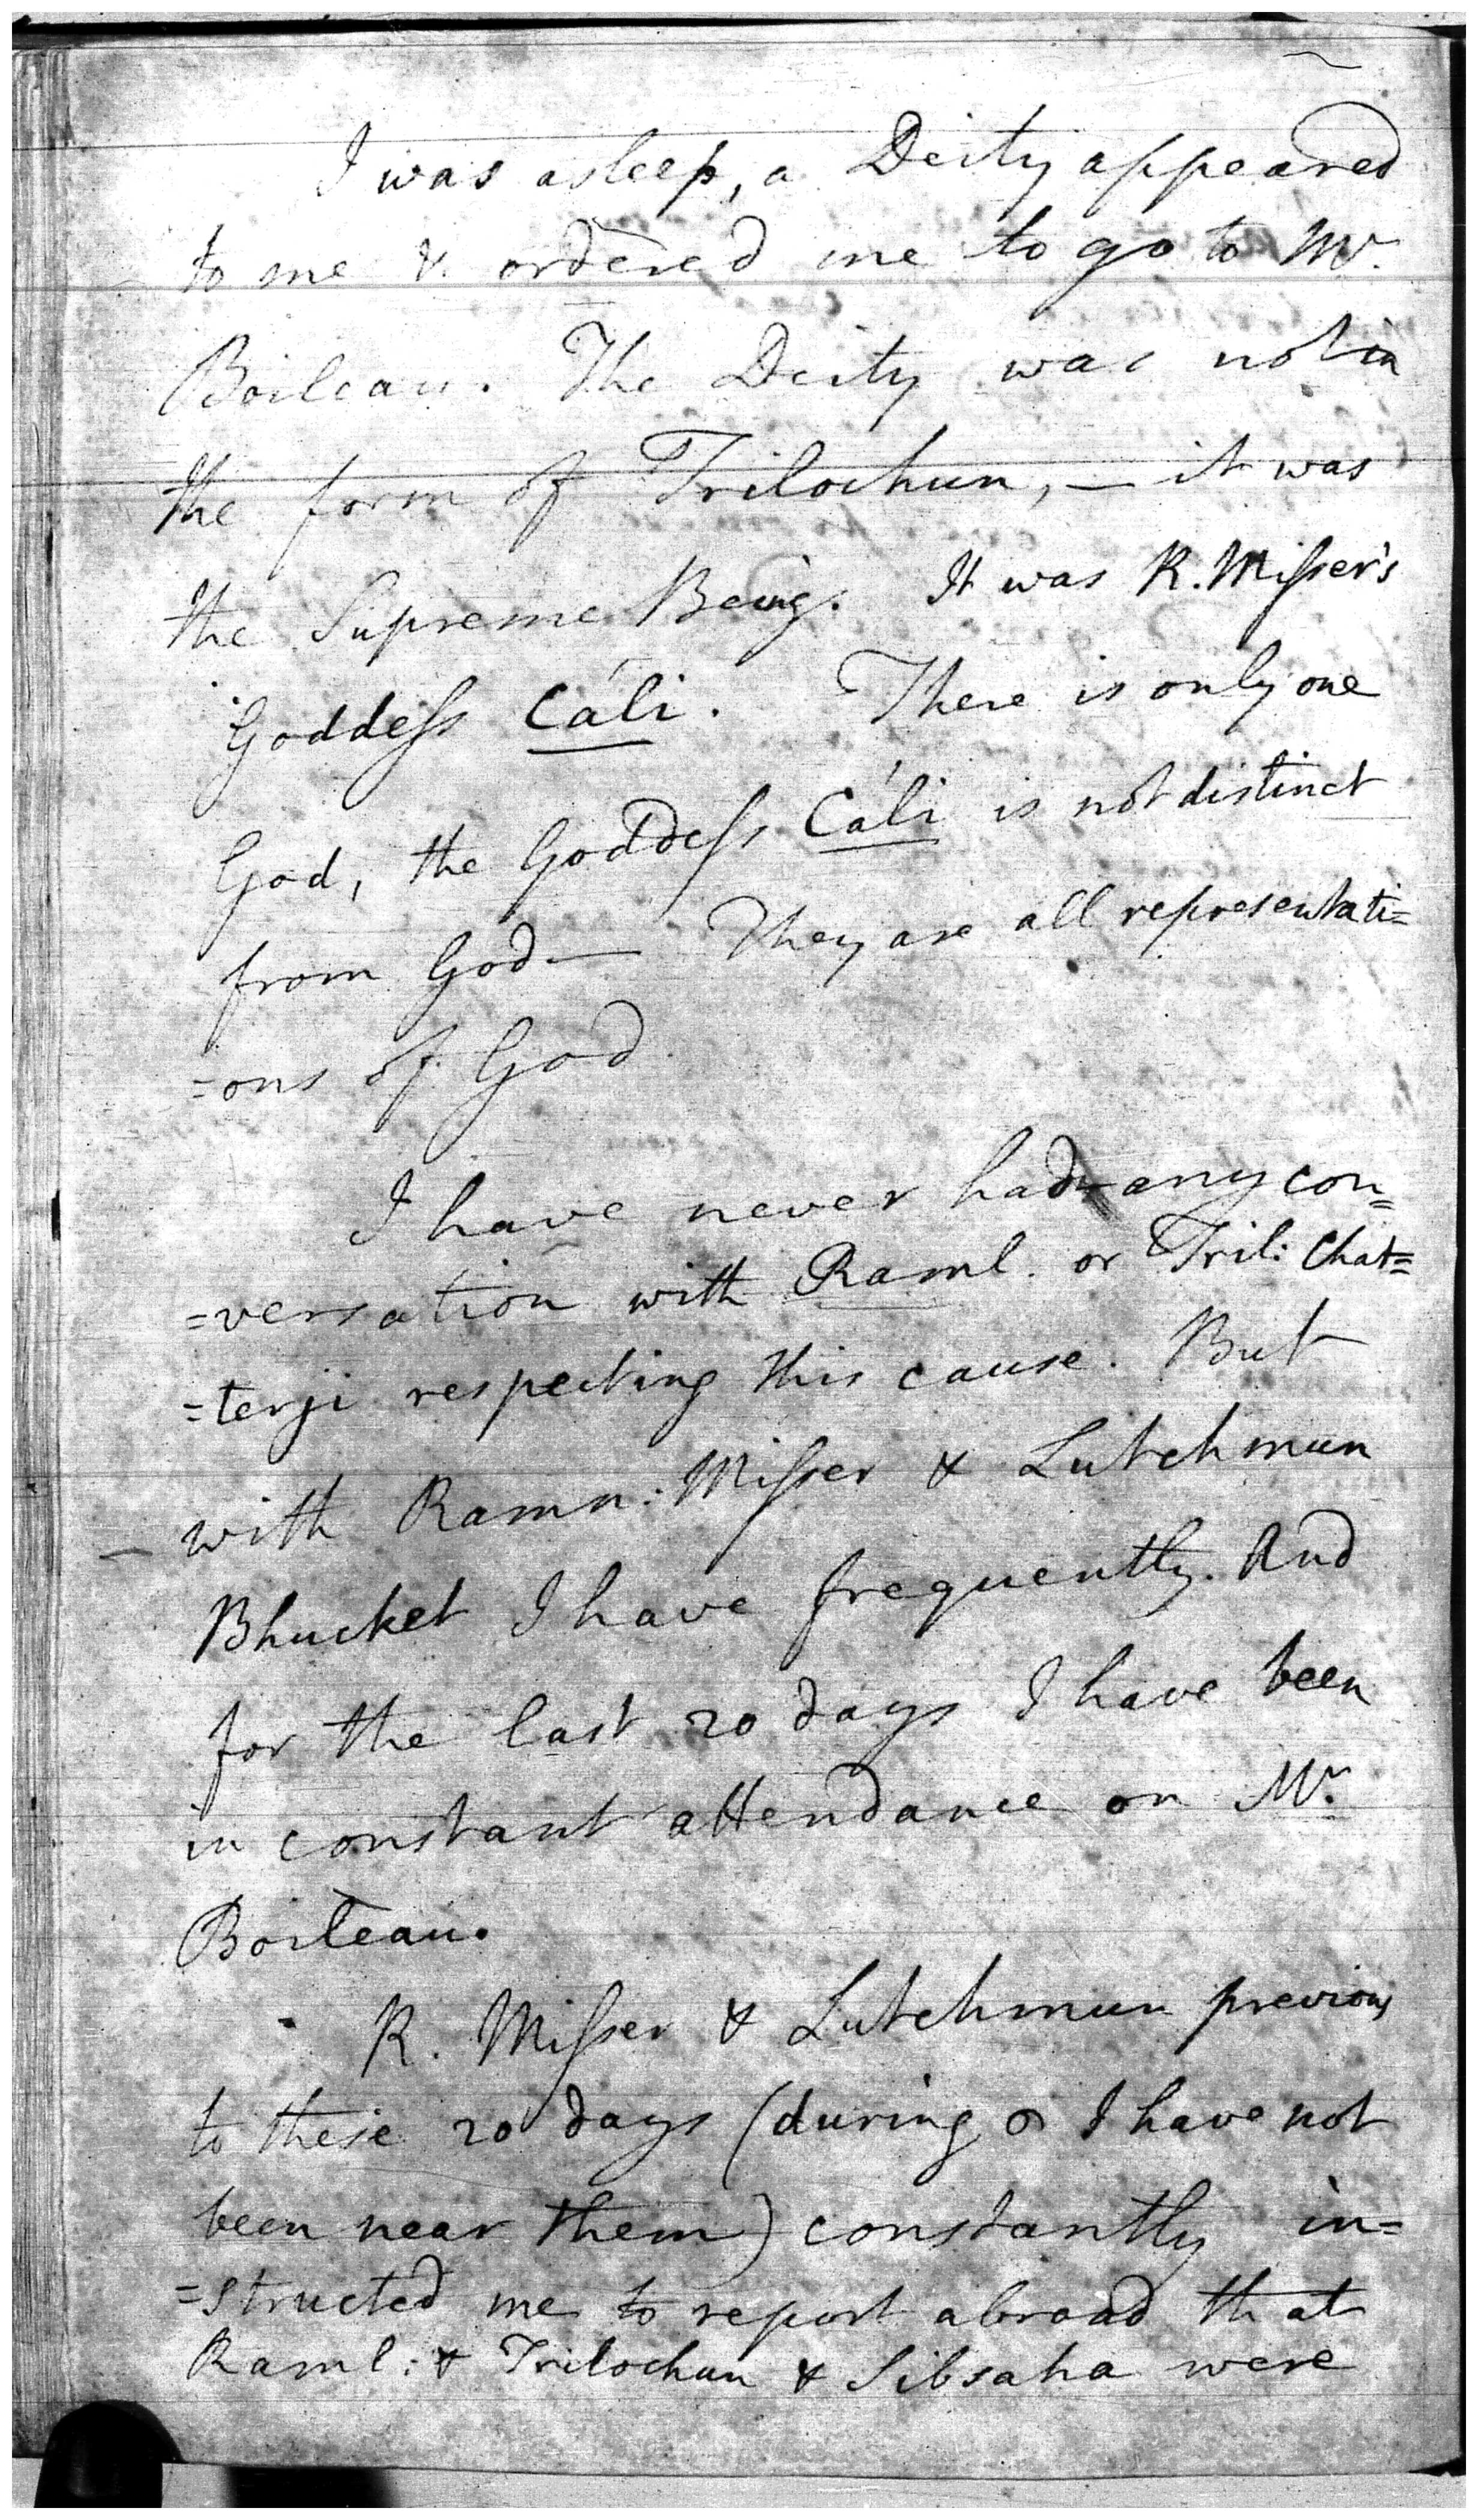 I was asleep, a Deity appeared
to me & ordered me to go to Mr.
Boileau. The Deity was not in
the form of Trilochun, — it was
the Supreme Being. It was R. Misser's
Goddess Cáli. There is only one
God, the Goddess Cáli is not distinct
from God — They are all representati=
=ons of God
I have never had any con=
=versation with Raml. or Tril: Chat=
=terji respecting this cause. But
with Ramn: Misser & Lutchmun
Bhucket I have frequently. And
for the last 20 days I have been
in constant attendance on Mr.
Boileau.
R. Misser & Lutchmun previous
to these 20 days (during I have not
been near them) constantly in=
=structed me to report abroad that
Raml: & Trilochun & Sibsaha were